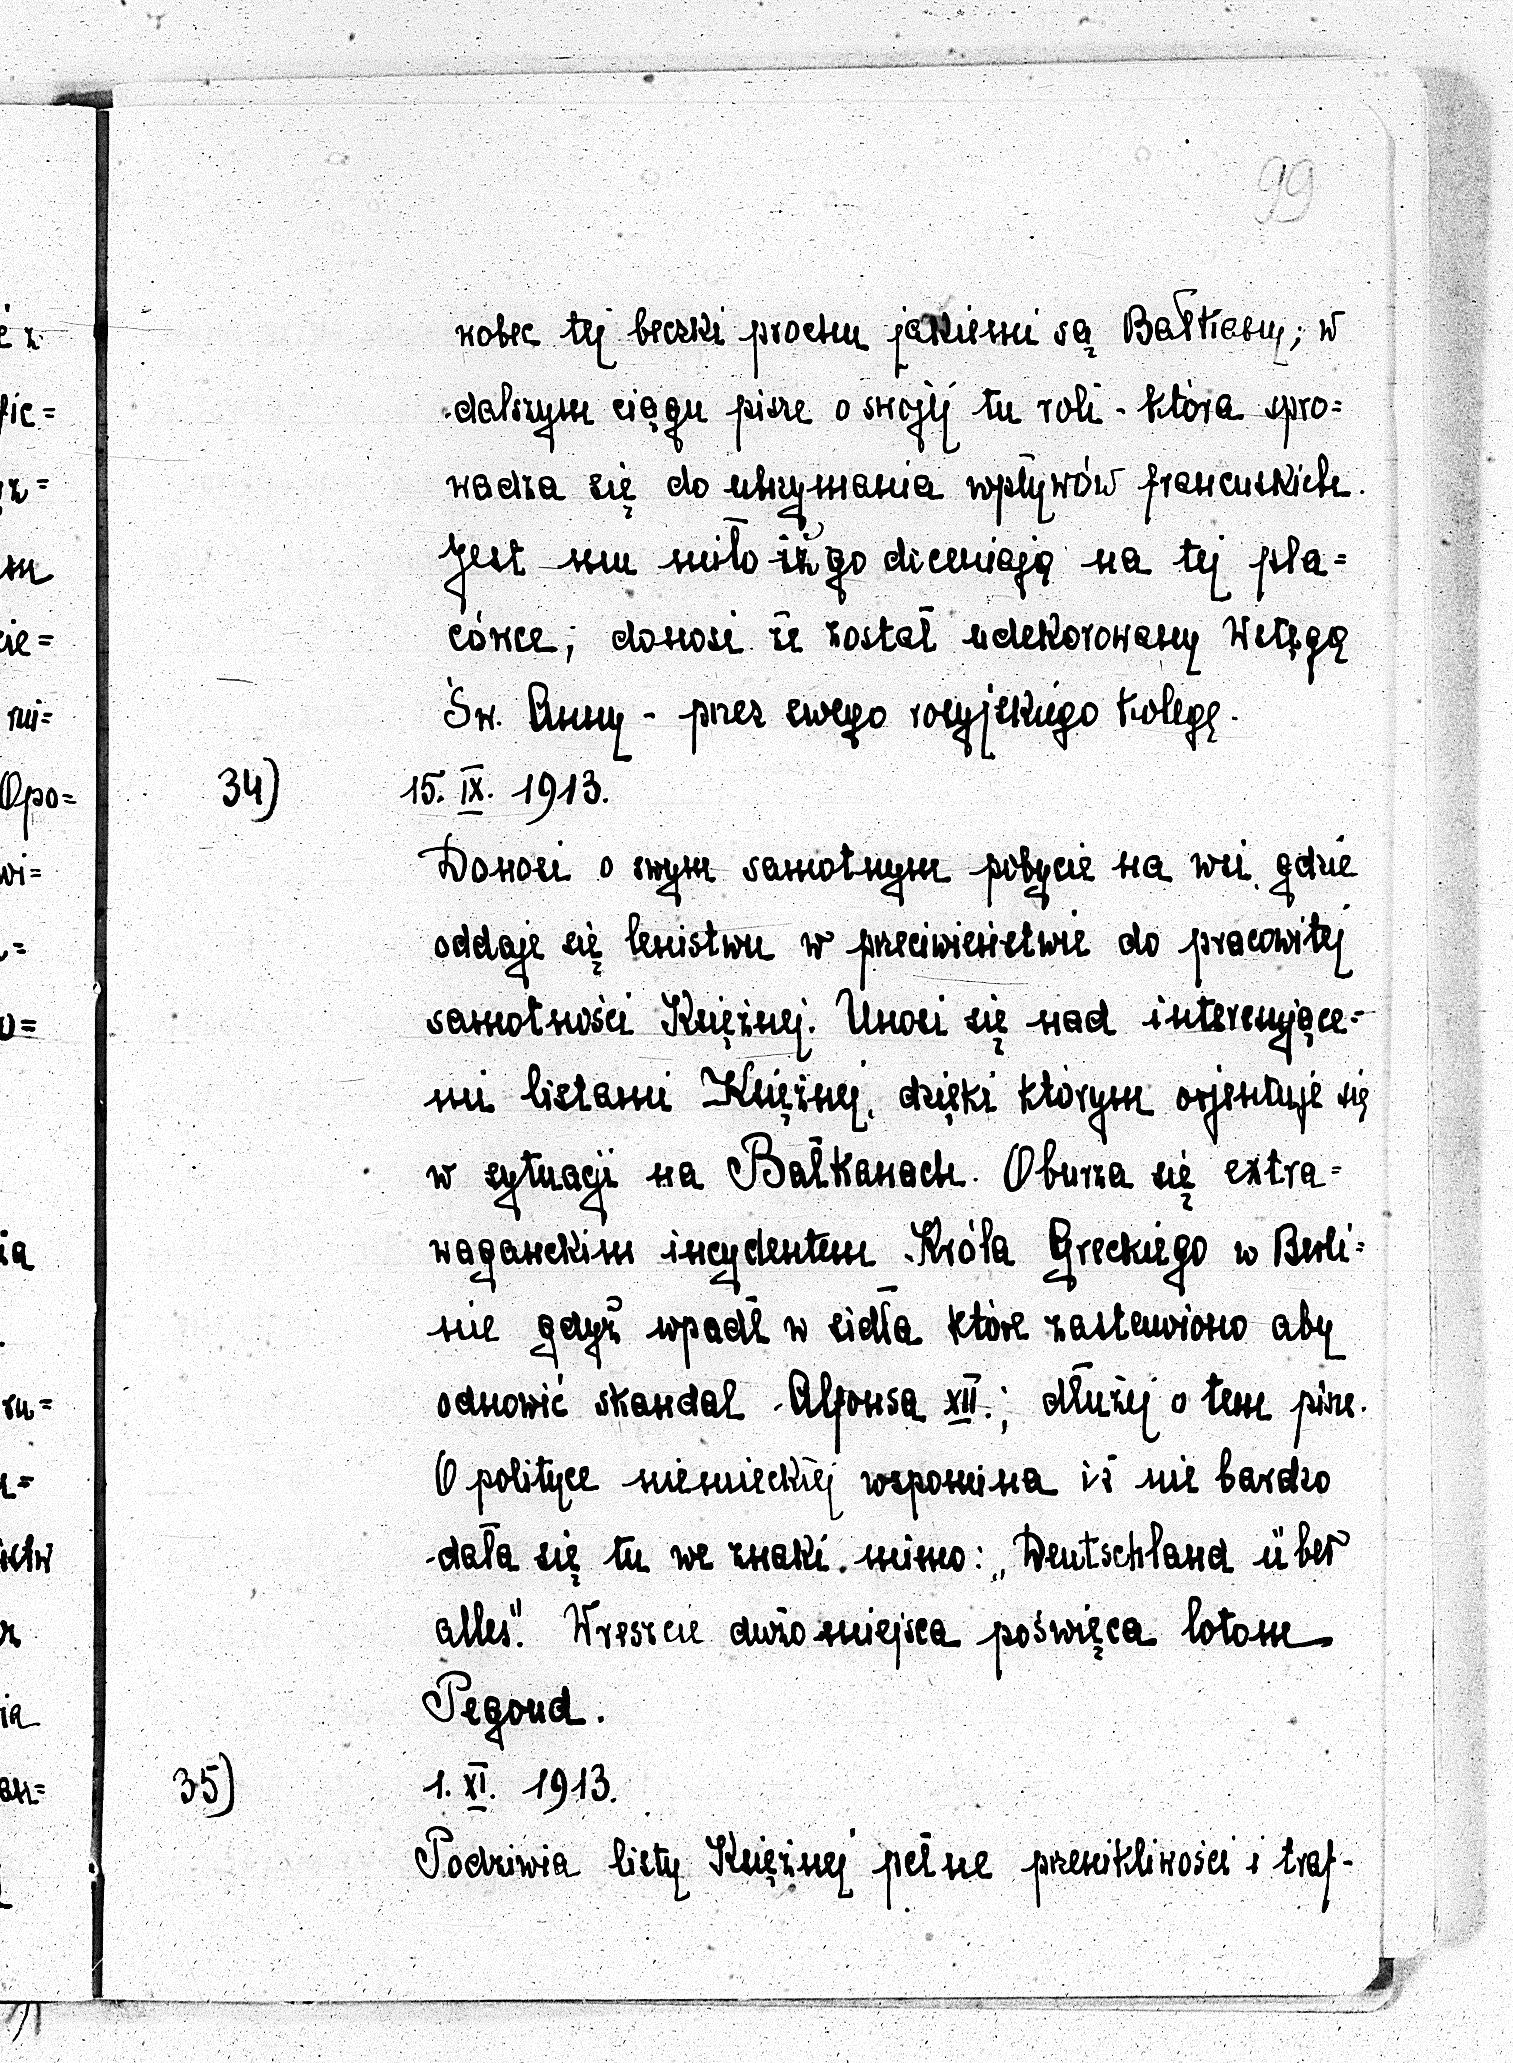 99
wobec tej beczki prochu jakiemi są Bałkany; w
dalszym ciągu pisze o swojéj tu roli - która spro=
wadza się do utrzymania wpływów francuskich.
Jest mu miło iż go doceniają na tej pla=
cówce; donosi że został udekorowany Wstęgą
Św. Anny - przez swego rosyjskiego kolegę.
34) 15. IX. 1913.
Donosi o swym samotnym pobycie na wsi, gdzie
oddaje się lenistwu w przeciwieństwie do pracowitej
samotności Księżnej. Unosi się nad interesujące=
mi listami Księżnej, dzięki którym orjentuje się
w sytuacji na Bałkanach. Oburza się extra=
waganckim incydentem Króla Greckiego w Berli=
nie gdyż wpadł w sidła które zastawiono aby
odnowić skandal Alfonsa XII.; dłużej o tem pisze.
O polityce niemieckiej wspomina iż nie bardzo
dała się tu we znaki, mimo: „Deutschland über
alles". Wreszcie dużo miejsca poświęca lotom
Pegoud.
35) 1. XI. 1913.
Podziwia listy Księżnej pełne przenikliwości i traf-